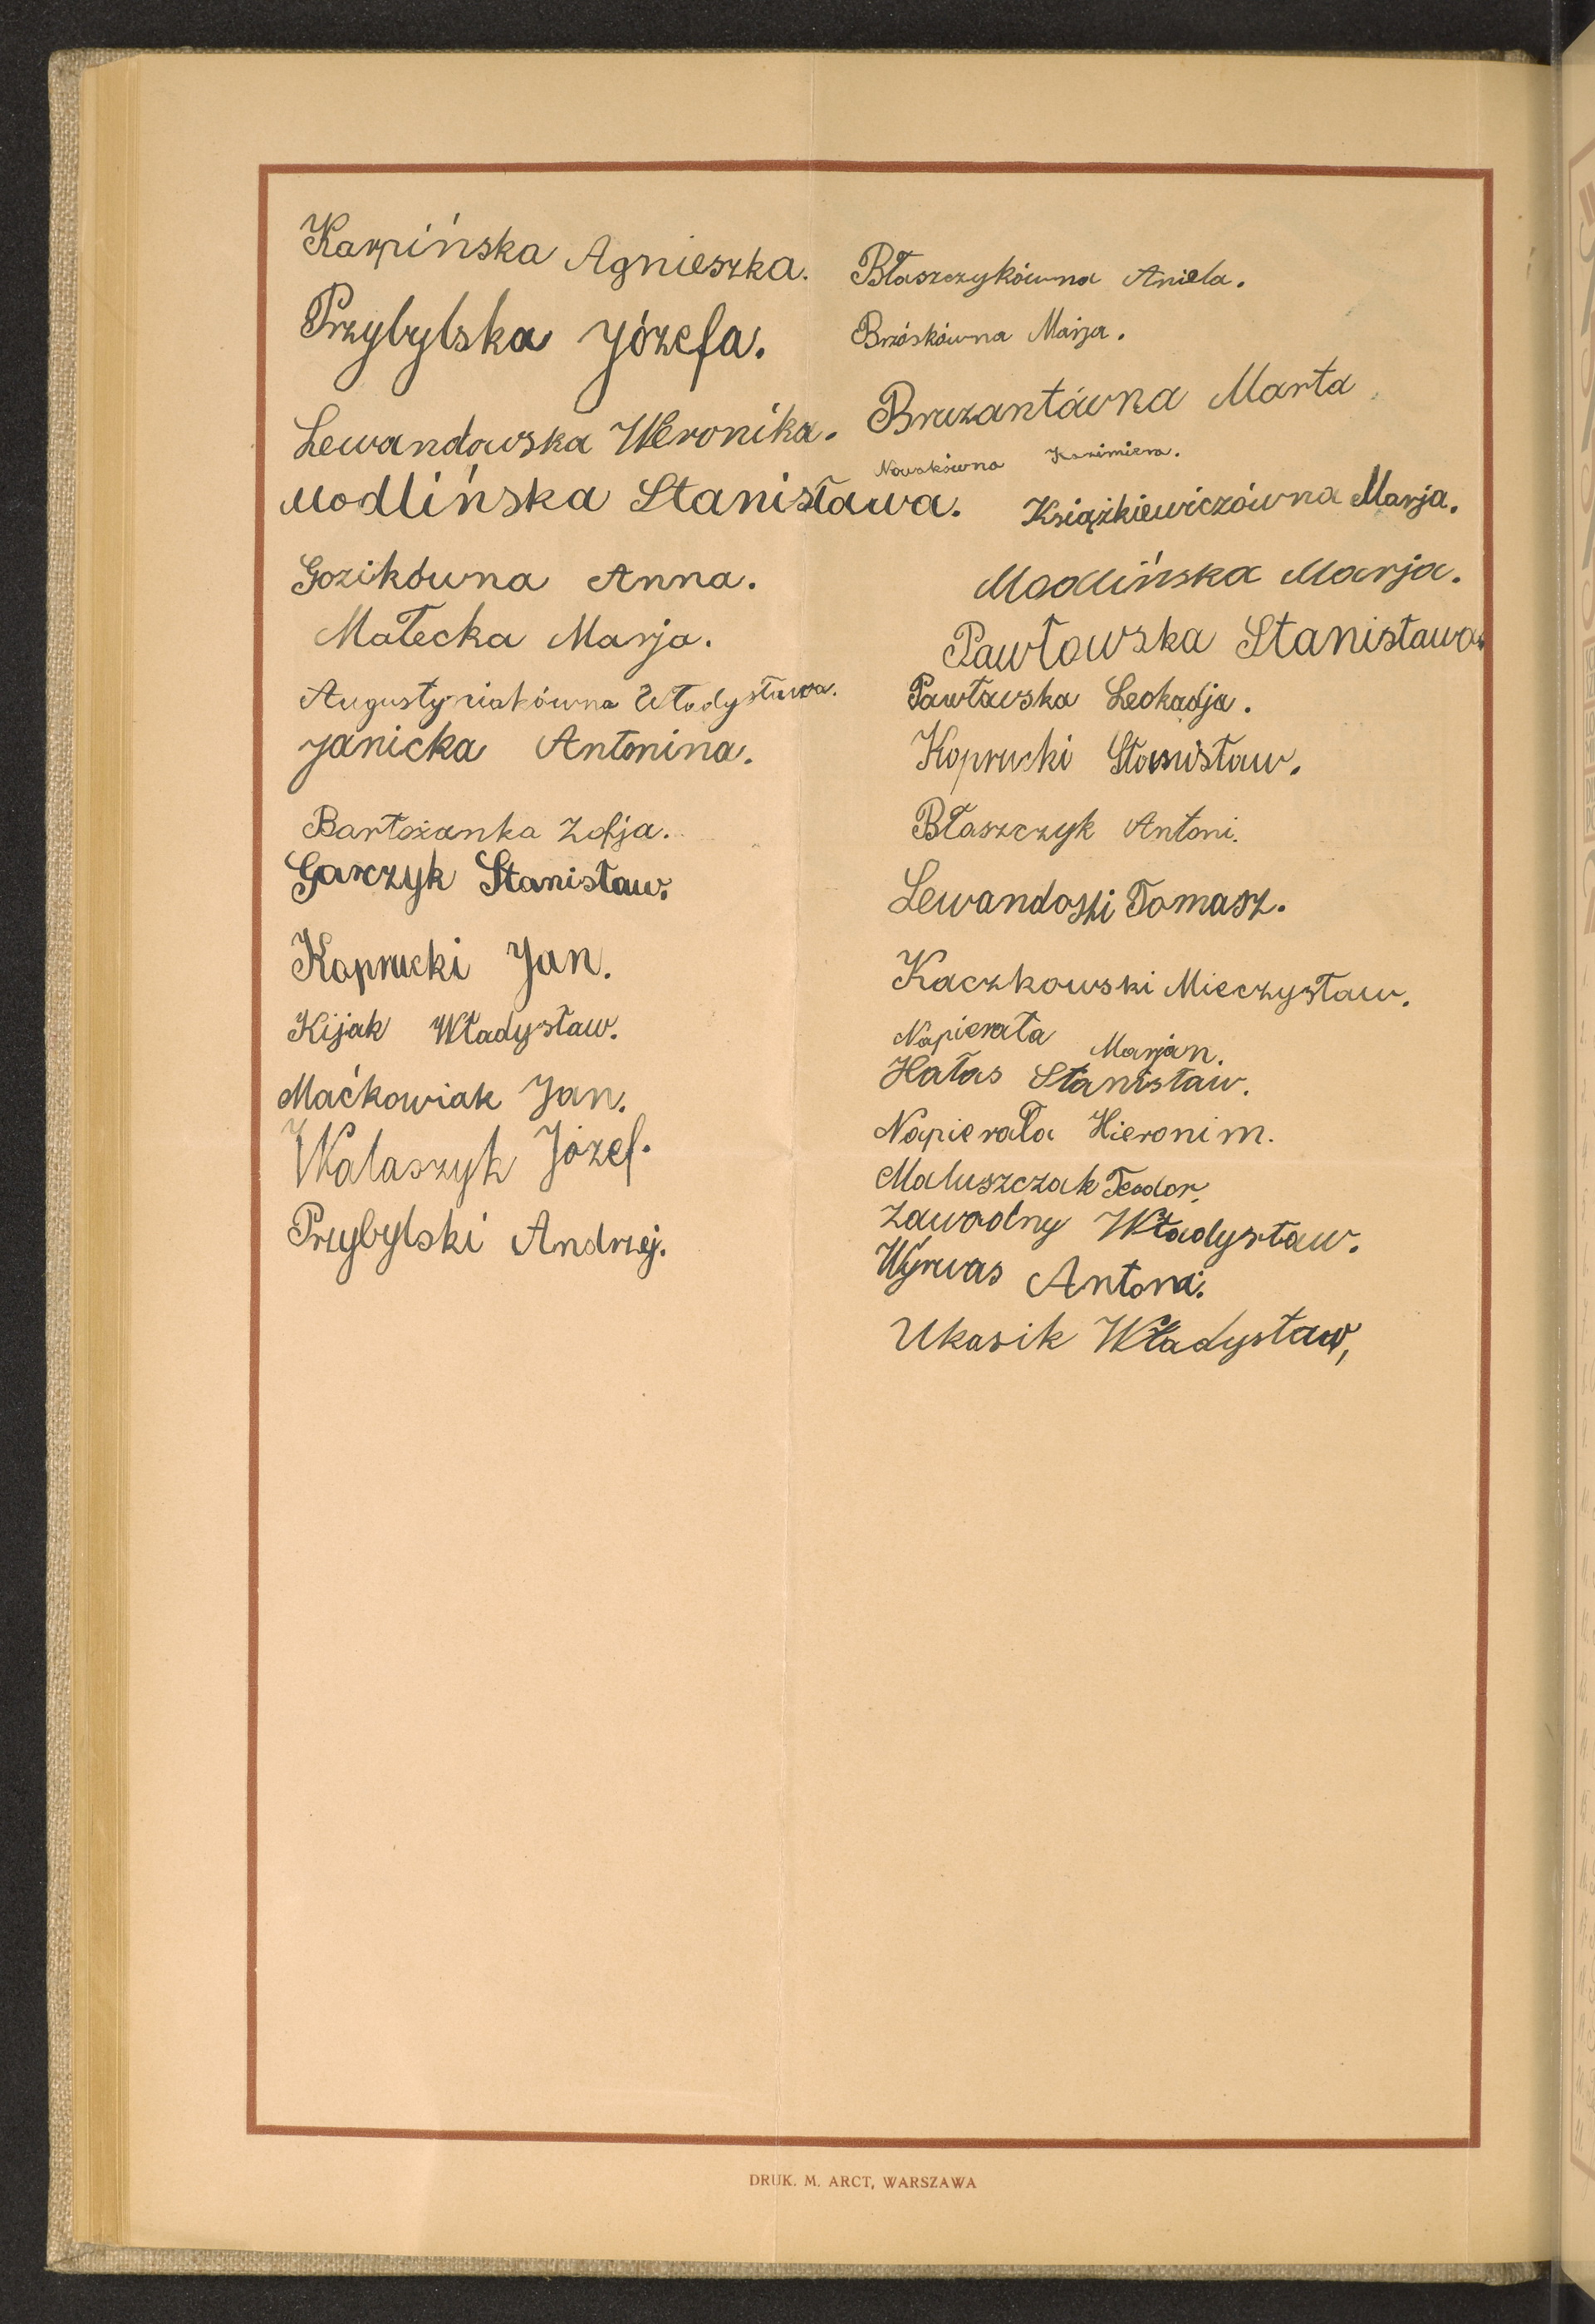 Karpińska Agnieszka.
Przybylska Józefa.
Lewandowska Weronika.
Modlińska Stanisława.
Gozikówna Anna.
Małecka Marja.
Augustyniakówna Władysława.
Janicka Antonina.
Bartożanka Zofja.
Garczyk Stanisław.
Koprucki Jan.
Kijak Władysław.
Maćkowiak Jan.
Walaszyk Józef.
Przybylski Andrzej.
Błaszczykówna Aniela.
Brzóskówna Marja.
Bruzantówna Marta
Nowakówna Kazimiera.
Książkiewiczówna Marja.
Modlińska Marja.
Pawłowska Stanisława.
Pawławska Leokadja.
Koprucki Stanisław.
Błaszczyk Antoni.
Lewandoski Tomasz.
Kaczkowski Mieczysław.
Napierała Marjan.
Hałas Stanisław.
Napierała Hieronim.
Maluszczak Teodor.
Zawodny Władysław.
Wyrwas Antoni.
Ukasik Władysław,
DRUK. M. ARCT, WARSZAWA